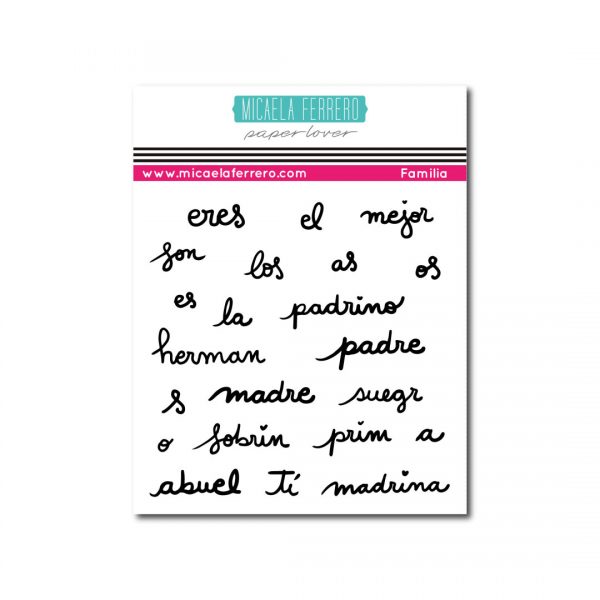 MICAELA FERRERO
paper lover
www.micaelaferrero.com Familia
eres el mejor
son los as os
es la padrino
herman padre
s madre suegr
o sobrin prim a
abuel tí madrina